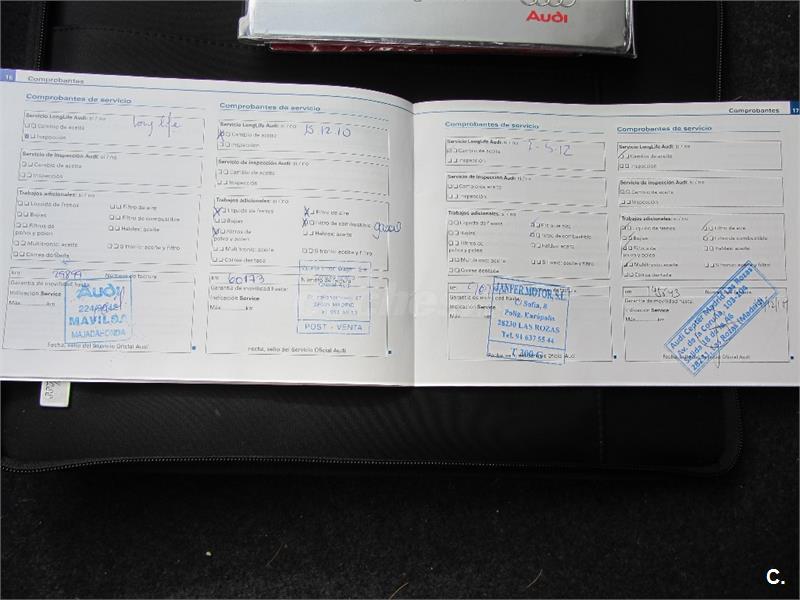 Audi
16 Comprobantes
Comprobantes de servicio
Servicio LongLife Audi: si / no
Cambio de aceite
Inspección
long life
Servicio de Inspección Audi: si / no
Cambio de aceite
Inspección
Trabajos adicionales: si / no
Líquido de frenos
Filtro de aire
Bujías
Filtro de combustible
Filtros de polvo y polen
Haldex: aceite
Multitronic: aceite
S tronic: aceite y filtro
Correa dentada
km 29899
Número de factura
Garantía de movilidad hasta:
Indicación Service
Máx. km
Audi
MAVILSA
MAJADAHONDA
Fecha, sello del Servicio Oficial Audi
Comprobantes de servicio
Servicio LongLife Audi: si / no
Cambio de aceite
Inspección
15.12.10
Servicio de Inspección Audi: si / no
Cambio de aceite
Inspección
Trabajos adicionales: si / no
Líquido de frenos
Filtro de aire
Bujías
Filtro de combustible
Filtros de polvo y polen
Haldex: aceite
Multitronic: aceite
S tronic: aceite y filtro
Correa dentada
km 60173
Número de factura
Garantía de movilidad hasta:
Indicación Service
Máx. km
POST - VENTA
Fecha, sello del Servicio Oficial Audi
Comprobantes 17
Comprobantes de servicio
Servicio LongLife Audi: si / no
Cambio de aceite
Inspección
Servicio de Inspección Audi: si / no
Cambio de aceite
Inspección
Trabajos adicionales: si / no
Líquido de frenos
Filtro de aire
Bujías
Filtro de combustible
Filtros de polvo y polen
Haldex: aceite
Multitronic: aceite
S tronic: aceite y filtro
Correa dentada
km
Garantía de movilidad hasta:
Indicación Service
Máx. km
JANFER MOTOR, S.L.
C/ Sofia, 8
Polig. Európolis
28230 LAS ROZAS
Tel. 91 637 55 44
Fecha, sello del Servicio Oficial Audi
Comprobantes de servicio
Servicio LongLife Audi: si / no
Cambio de aceite
Inspección
Servicio de Inspección Audi: si / no
Cambio de aceite
Inspección
Trabajos adicionales: si / no
Líquido de frenos
Filtro de aire
Bujías
Filtro de combustible
Filtros de polvo y polen
Haldex: aceite
Multitronic: aceite
S tronic: aceite y filtro
Correa dentada
km
Garantía de movilidad hasta:
Indicación Service
Máx. km
Audi Center Madrid Las Rozas
Las Rozas (Madrid)
Fecha, sello del Servicio Oficial Audi
C.